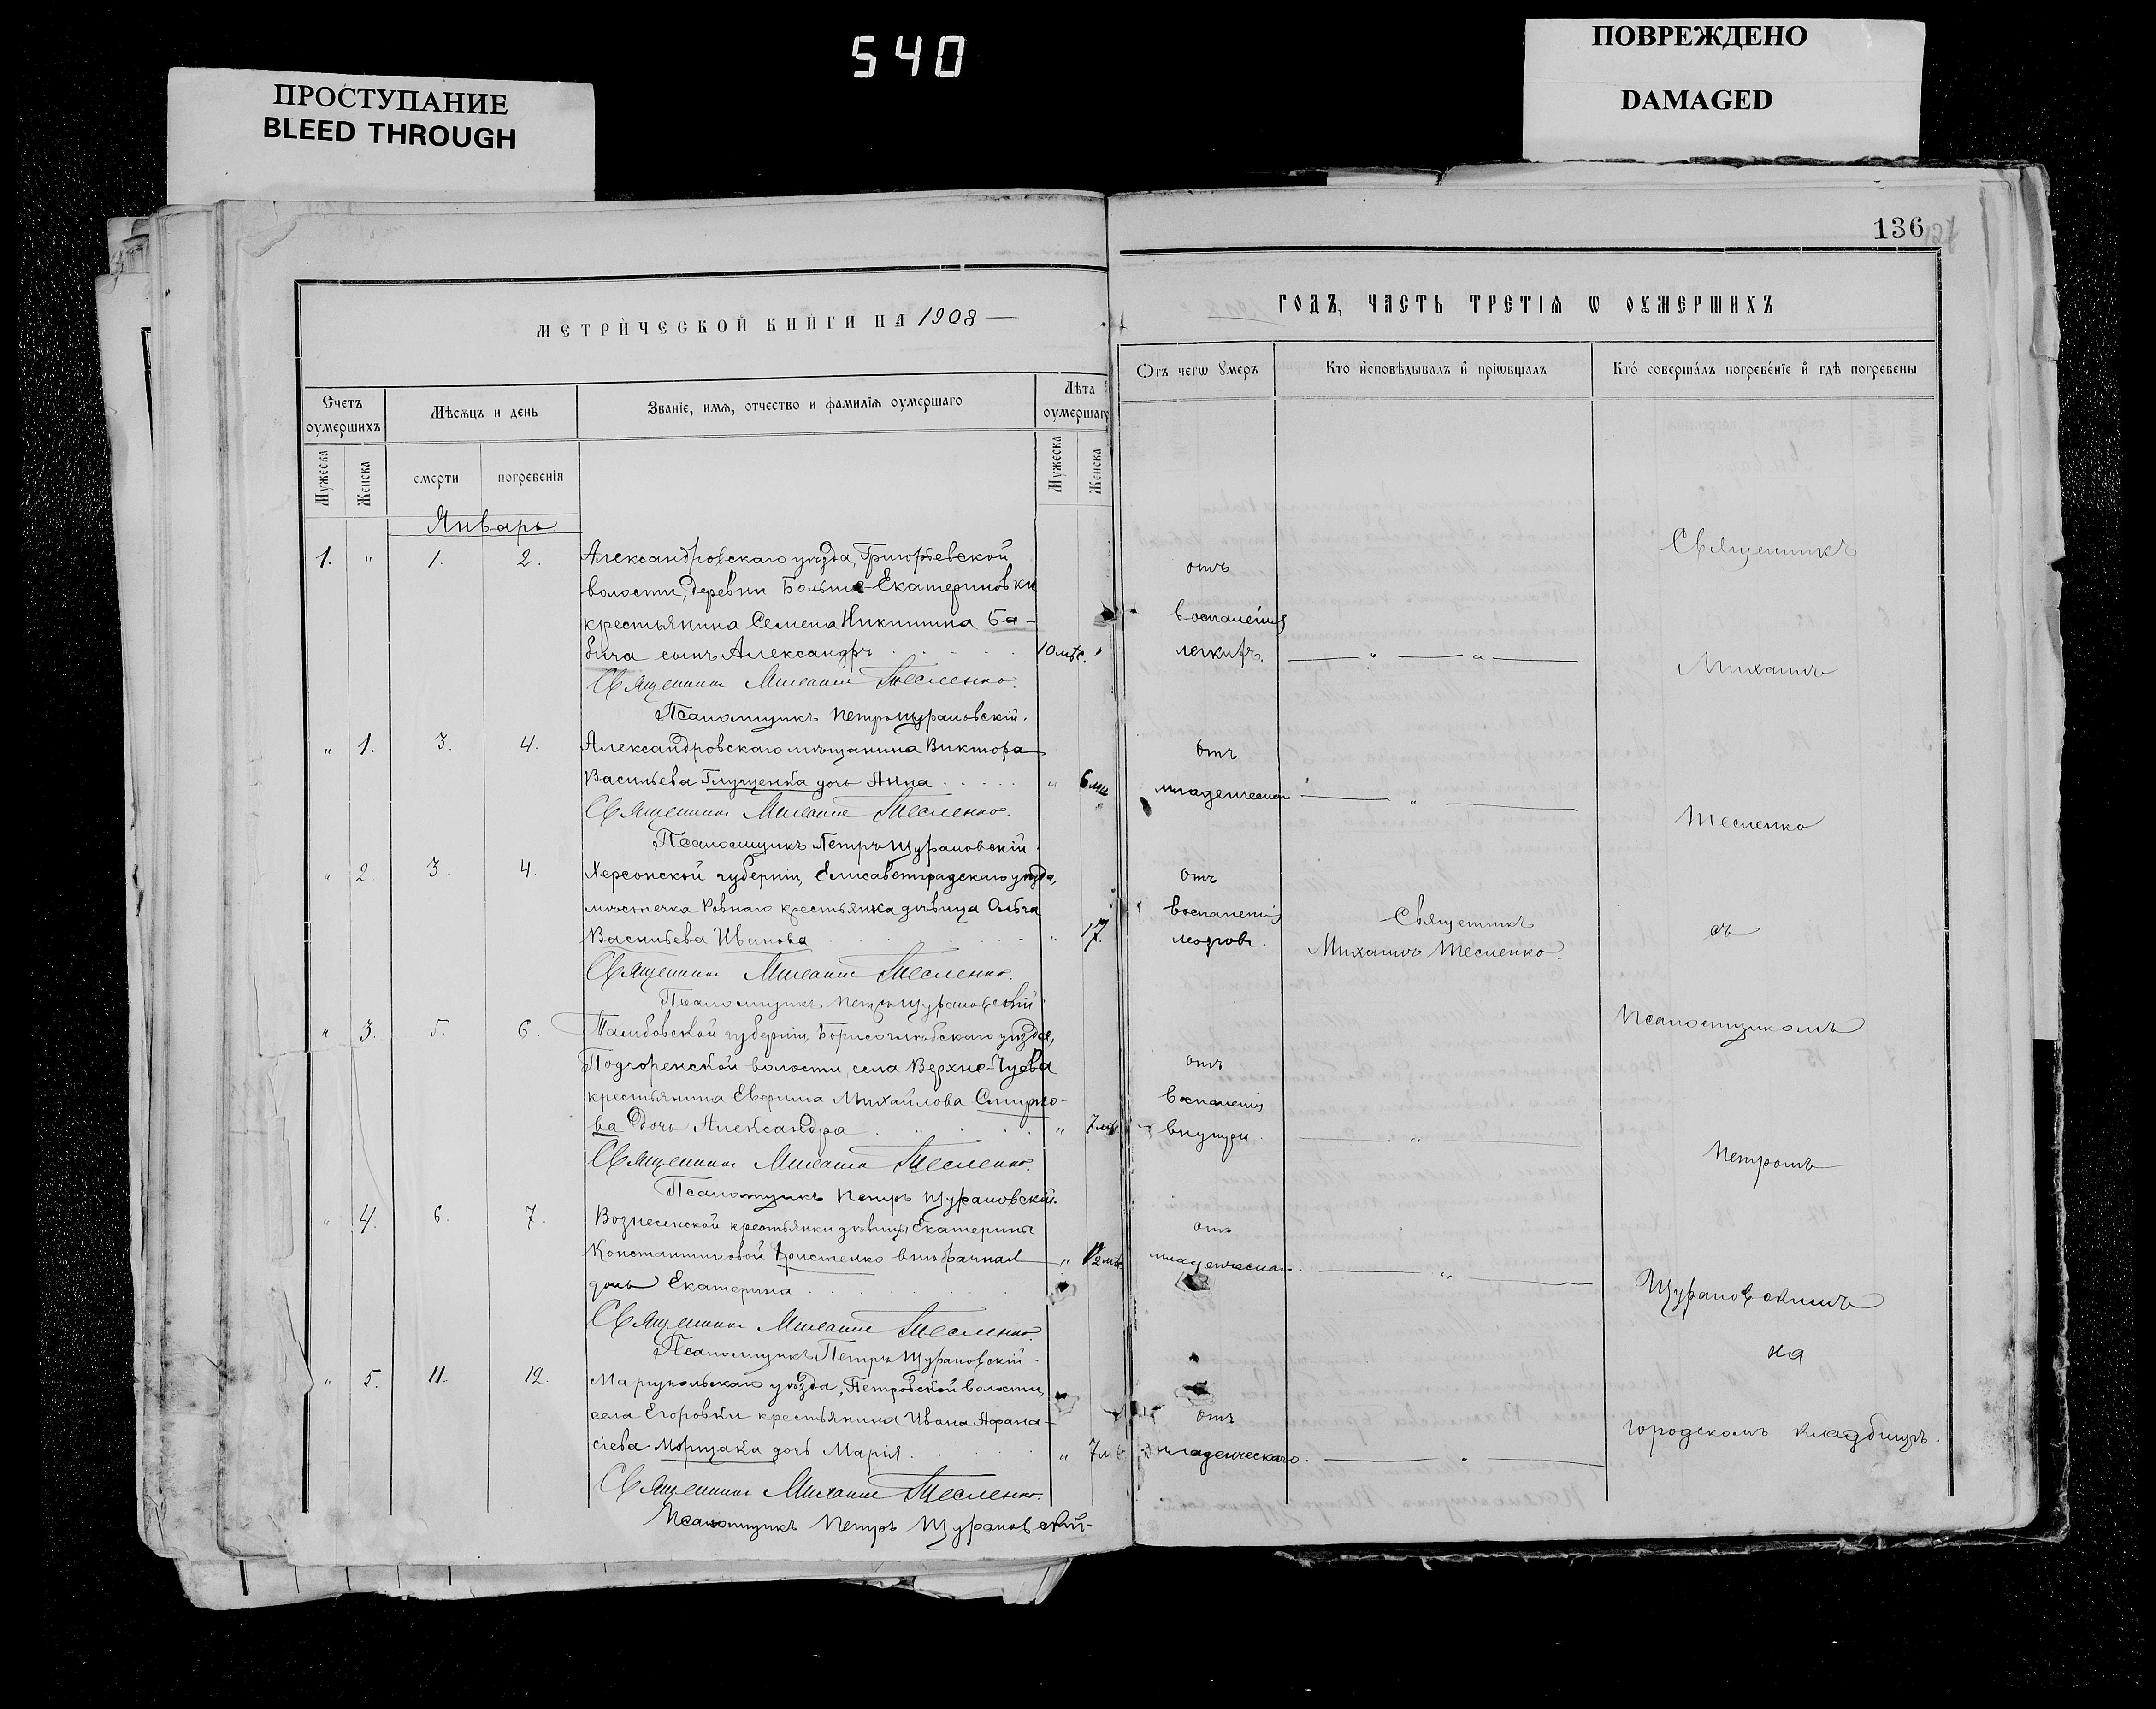 540
ПРОСТУПАНИЕ
BLEED THROUGH
ПОВРЕЖДЕНО
DAMAGED
136
МЕТРИЧЕСКОЙ КНИГИ НА 1908
Счетъ оумершихъ
Мѣсяцъ и день
Званіе, имя, отчество и фамилія оумершаго
Лѣта оумершаго
Мужеска
Женска
смерти
погребенія
Мужеска
Женска
Январь
1. " 1. 2. Александровскаго уѣзда, Григорьевской
волости, деревни Больше-Екатериновки
крестьянина Семена Никитина Ба-
бича сынъ Александръ 10 мѣс. "
Священникъ Михаилъ Тесленко.
Псаломщикъ Петръ Щурановскій.
" 1. 3. 4. Александровскаго мѣщанина Виктора
Васильева Глущенка дочь Анна " 6 мѣс
Священникъ Михаилъ Тесленко.
Псаломщикъ Петръ Щурановскій.
" 2 3. 4. Херсонской губерніи, Елисаветградскаго уѣзда,
мѣстечка Ровнаго крестьянка дѣвица Ольга
Васильева Иванова " 17.
Священникъ Михаилъ Тесленко.
Псаломщикъ Петръ Щурановскій.
" 3. 5. 6. Тамбовской губерніи, Борисоглѣбскаго уѣзда,
Подгоренской волости, села Верхне-Чуева
крестьянина Евфима Михайлова Смирно-
ва дочь Александра " 7 мѣс
Священникъ Михаилъ Тесленко.
Псаломщикъ Петръ Щурановскій.
" 4. 6. 7. Вознесенской крестьянки дѣвицы Екатерины
Константиновой внѣбрачная "
дочь Екатерина
Священникъ Михаилъ Тесленко.
Псаломщикъ Петръ Щурановскій.
" 5. 11. 12. Маріупольскаго уѣзда, Петровской волости,
села Егоровки крестьянина Ивана Афана-
сіева дочь Марія. " 7 мѣс
Священникъ Михаилъ Тесленко.
Псаломщикъ Петръ Щурановскій.
ГОДЪ, ЧАСТЬ ТРЕТІЯ Ѡ ОУМЕРШИХЪ
Отъ чегѡ умеръ
Кто исповѣдывалъ и пріѡбщалъ
Кто совершалъ погребеніе и гдѣ погребены
отъ
воспаленія
легкихъ. "  "
отъ
младенческаго "
отъ
воспаленія
мозговъ.
Священникъ
Михаилъ Тесленко.
отъ
воспаленія
внутри. "
отъ
младенческаго. "
отъ
младенческаго. "
Священникъ
Михаилъ
Тесленко
съ
Псаломщикомъ
Петромъ
Щурановскимъ
на
городскомъ кладбищѣ.